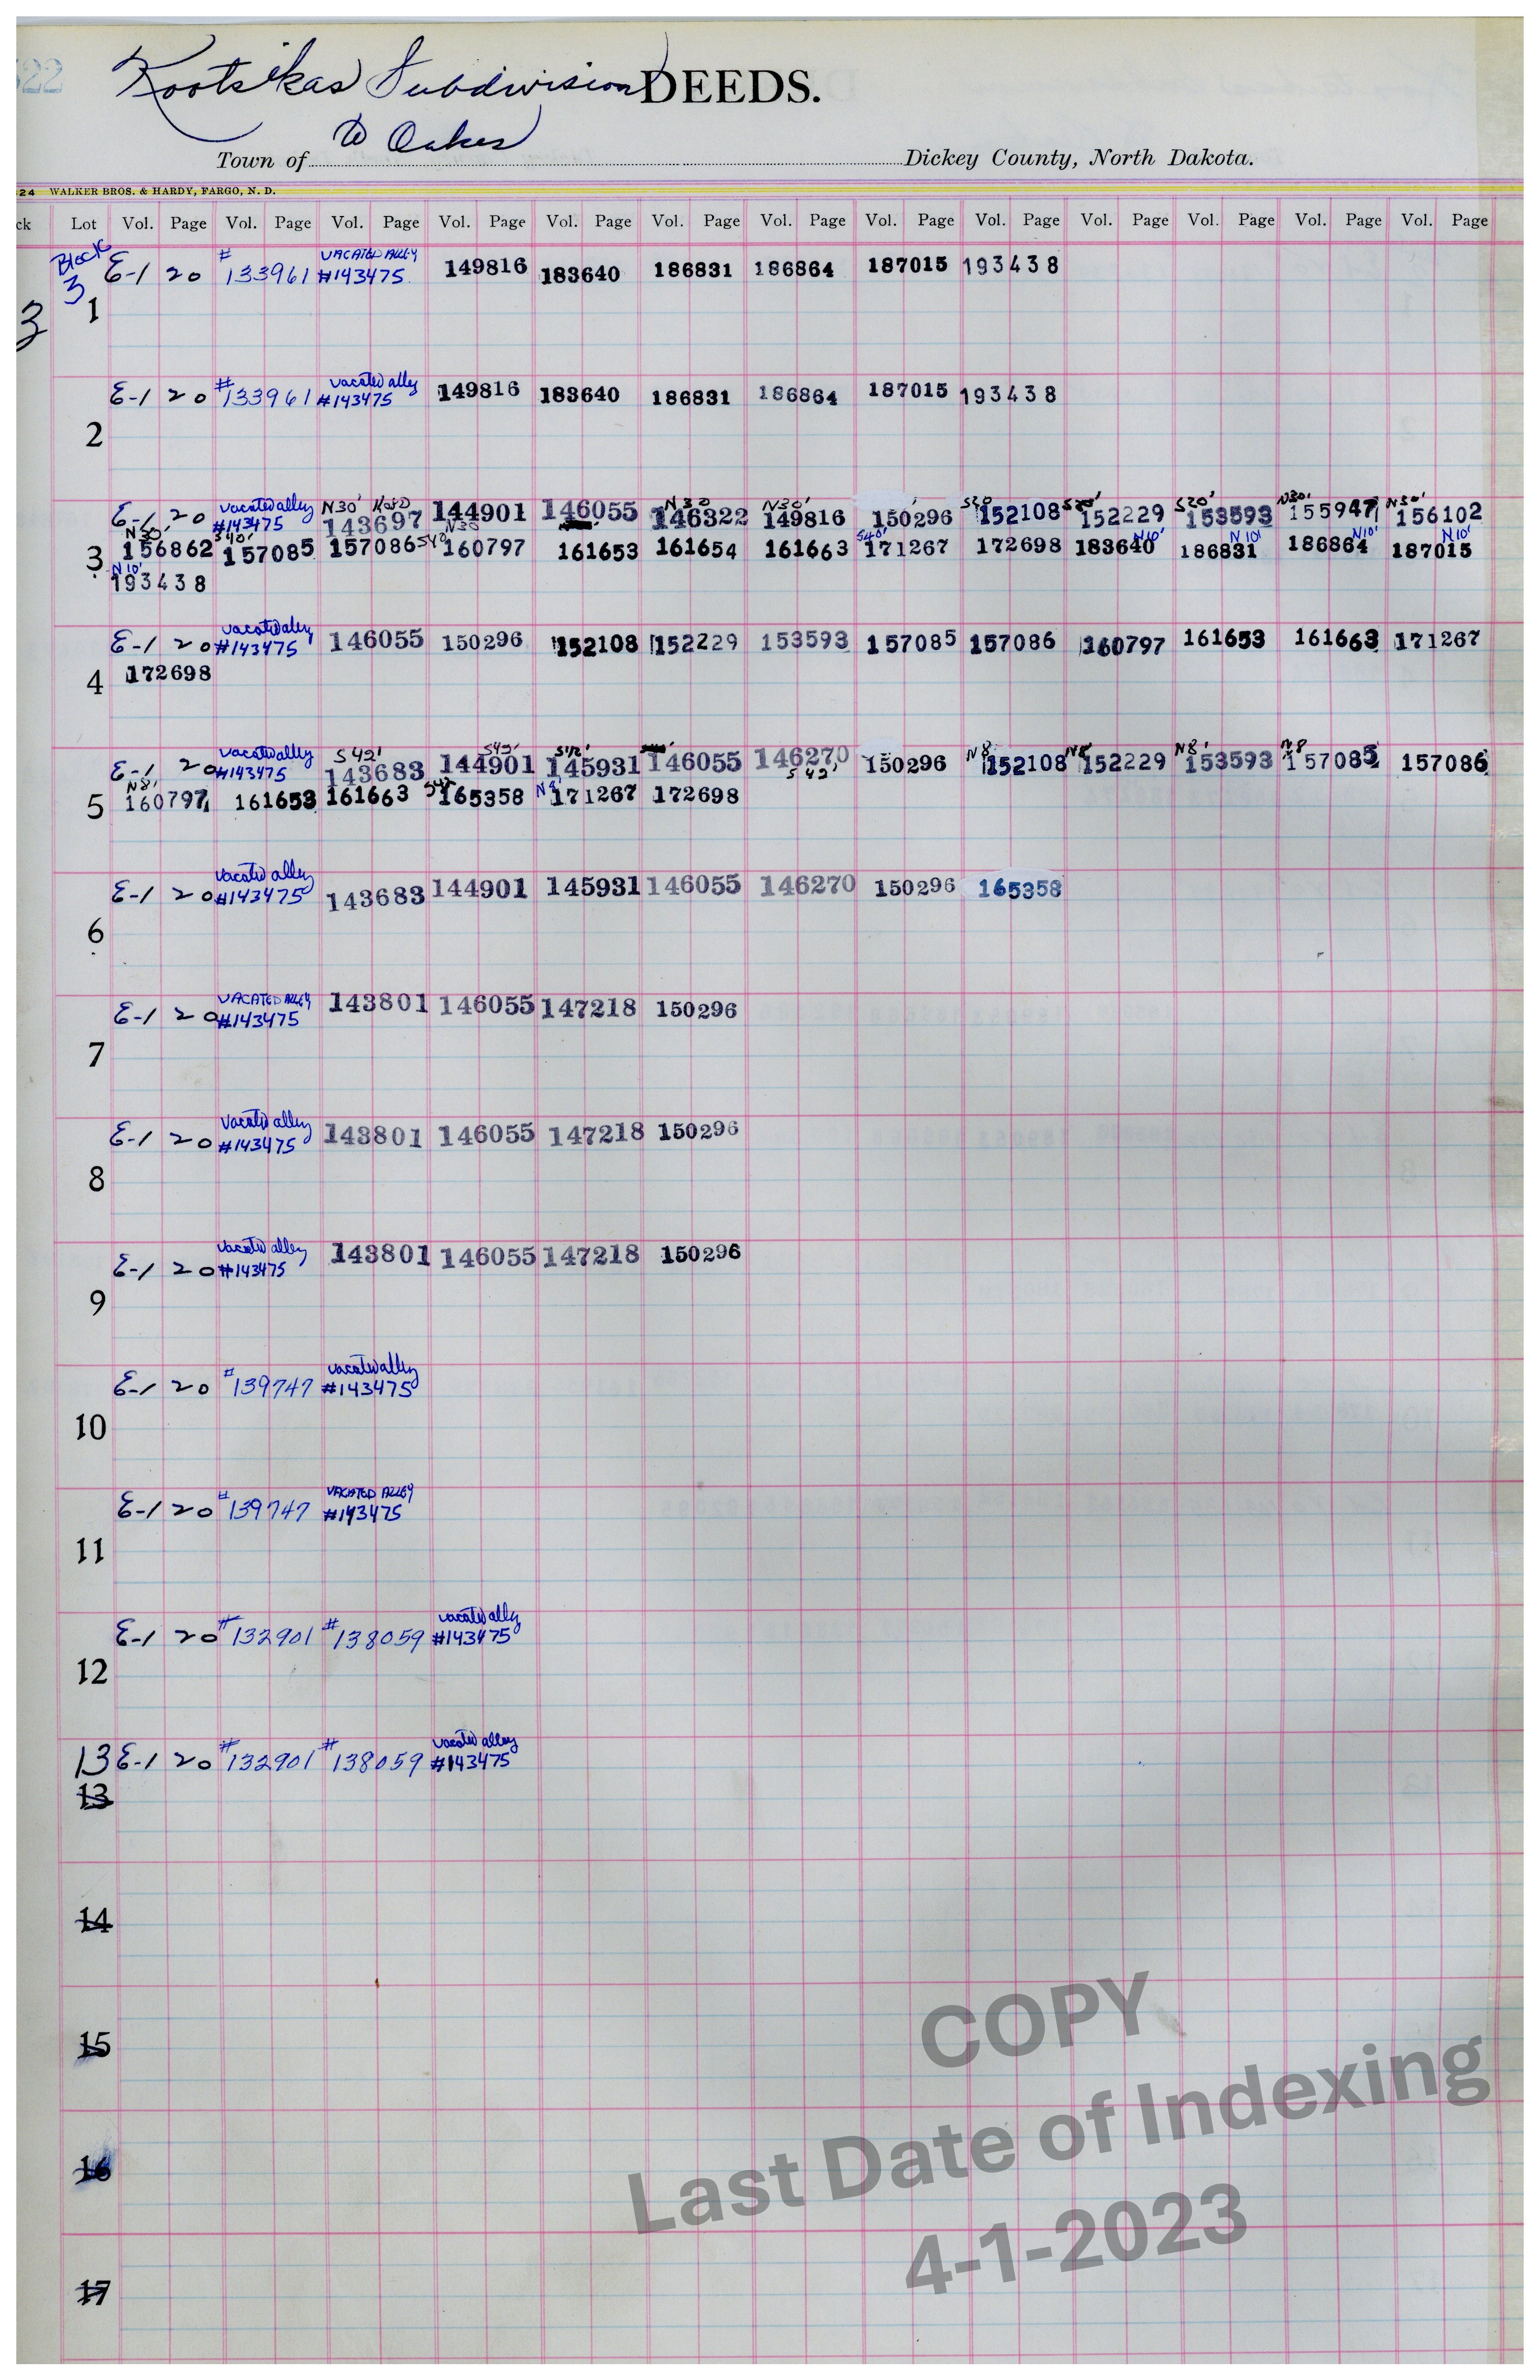 322
Kootsikas Subdivision DEEDS.
to Oakes
Town of Dickey County, North Dakota.
24 WALKER BROS. & HARDY, FARGO, N. D.
ck Lot Vol. Page Vol. Page Vol. Page Vol. Page Vol. Page Vol. Page Vol. Page Vol. Page Vol. Page Vol. Page Vol. Page Vol. Page Vol. Page
Block # VACATED ALLEY
3 E-1 20 133961 #143475 149816 183640 186831 186864 187015 193438
3 1
# vacated ally
E-1 20 133961 #143475 149816 183640 186831 186864 187015 193438
2
vacated alley N30' N30 N30' S20 S20' S20' N30' N30'
E-1 20 #143475 143697 144901 146055 146322 149816 150296 152108 152229 153593 155947 156102
N30' S40' N30 S40' S40' N10' N10' N10' N10'
3 156862 157085 157086 160797 161653 161654 161663 171267 172698 183640 186831 186864 187015
N10'
193438
vacated alley
E-1 20 #143475 146055 150296 152108 152229 153593 157085 157086 160797 161653 161663 171267
4 172698
vacated alley S42' S42' S42' N8 N8' N8' N8
E-1 20 #143475 143683 144901 145931 146055 146270 150296 152108 152229 153593 157085 157086
N8' S42 N8' S42'
5 160797 161653 161663 165358 171267 172698
vacated alley
E-1 20 #143475 143683 144901 145931 146055 146270 150296 165358
6
VACATED ALLEY
E-1 20 #143475 143801 146055 147218 150296
7
vacated alley
E-1 20 #143475 143801 146055 147218 150296
8
vacated alley
E-1 20 #143475 143801 146055 147218 150296
9
vacated alley
E-1 20 #139747 #143475
10
VACATED ALLEY
E-1 20 #139747 #143475
11
vacated ally
E-1 20 #132901 #138059 #143475
12
vacated alley
13 E-1 20 #132901 #138059 #143475
13
14
15
16
17
COPY
Last Date of Indexing
4-1-2023